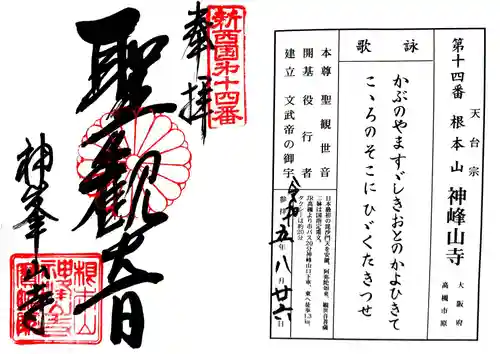 第十四番 天台宗 根本山 神峰山寺 大阪府高槻市原
詠歌
かぶのやま すゞしきおとの かよひきて
こゝろのそこに ひゞくたきつせ
本尊 聖観世音
開基 役行者
建立 文武帝の御宇
日本最初の毘沙門天を安置。阿弥陀如来、観世音菩薩
二躰は国指定重文。
JR高槻より市バス20分神峰山口下車、東へ徒歩1.3km、
タクシーは約20分
参拝 令和五年八月廿六日
新西国第十四番
奉拝
聖観音
神峯山寺